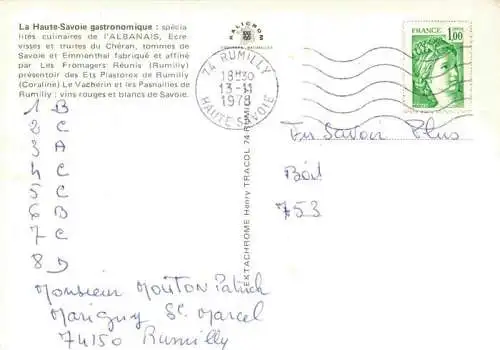 La Haute-Savoie gastronomique : spécia
lités culinaires de l'ALBANAIS, Ecre
visses et truites du Chéran, tommes de
Savoie et Emmenthal fabriqué et affiné
par Les Fromagers Réunis (Rumilly)
présentoir des Ets Plastorex de Rumilly
(Coraline) Le Vachérin et les Pasnailles de
Rumilly : vins rouges et blancs de Savoie.
KALICROM
74 RUMILLY
18H30
13-11
1978
HAUTE SAVOIE
FRANCE
1,00
EKTACHROME Henry TRACOL 74-RUMILLY
1 B
2 C
3 A
4 C
5 C
6 B
7 C
8 D
Monsieur MOUTON Patrick
Marigny St. Marcel
74150 Rumilly
En Savoir Plus
Boit
753